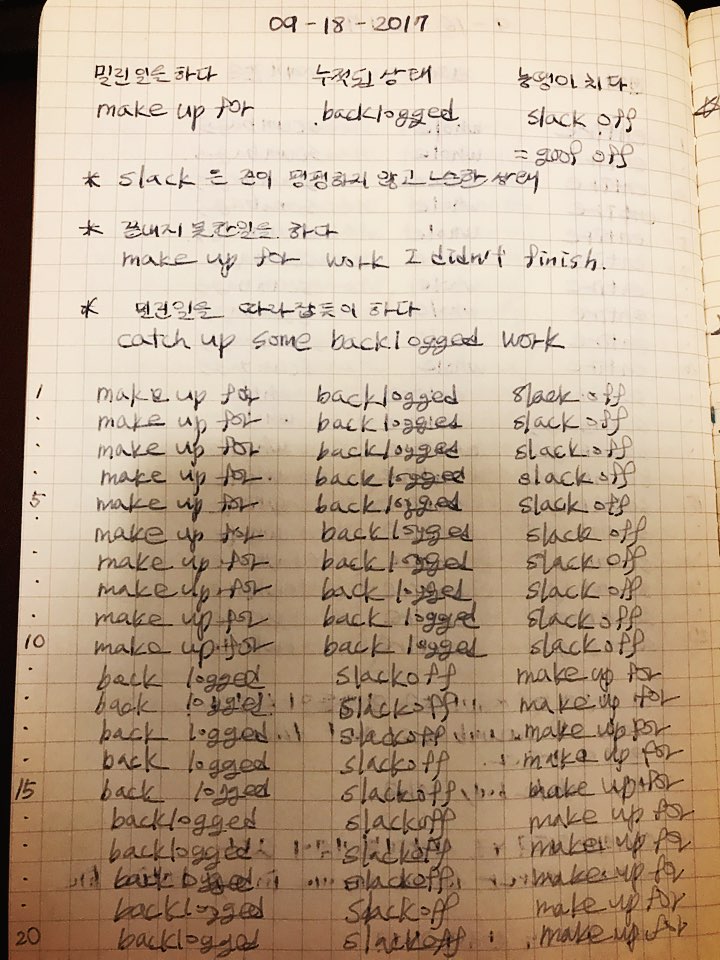 09-18-2017
밀린일을하다 누적된 상태 농땡이 치다
make up for backlogged slack off
= goof off
* slack 은 끈이 팽팽하지 않고 느슨한 상태
* 끝내지 못한일을 하다
make up for work I didn't finish.
* 밀린일을 따라잡듯이 하다
catch up some backlogged work
1 make up for backlogged slack off
· make up for backlogged slack off
· make up for backlogged slack off
· make up for backlogged slack off
5 make up for backlogged slack off
· make up for backlogged slack off
· make up for backlogged slack off
· make up for backlogged slack off
· make up for backlogged slack off
10 make up for backlogged slack off
· back logged slack off make up for
· back logged slack off make up for
· back logged slack off make up for
· back logged slack off make up for
15 back logged slack off make up for
· backlogged slackoff make up for
· backlogged slackoff make up for
· backlogged slackoff make up for
· backlogged slackoff make up for
20 backlogged slackoff make up for